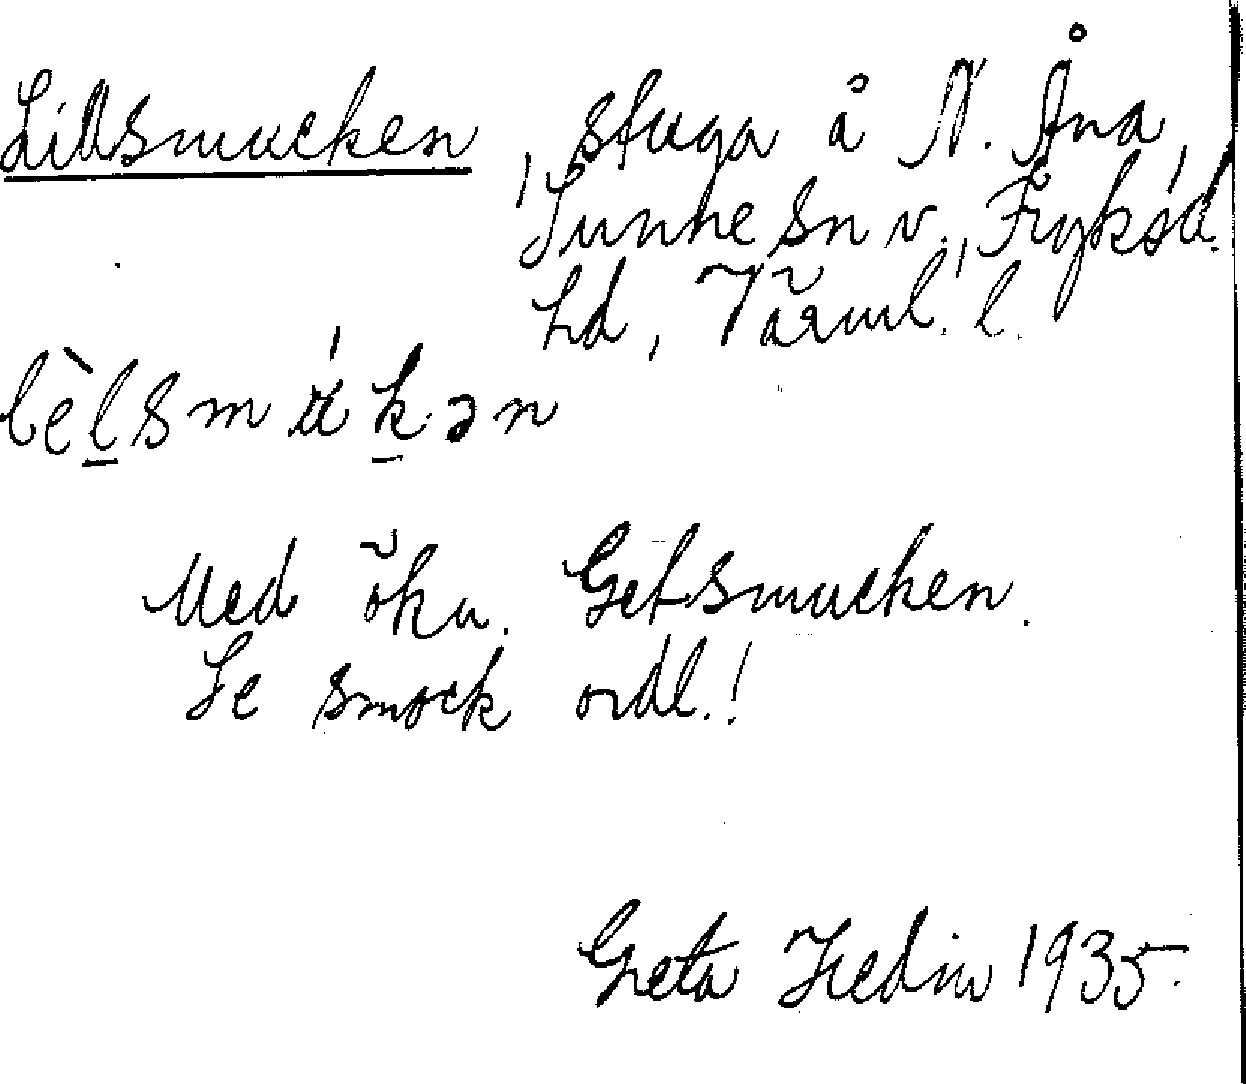 Lillsmucken, stuga å N. Åna,
Sunne sn v., Fryksd.
hd, Värml. l.
lèlsmúkən
Med ökn. Getsmucken.
Se smock ordl.!
Greta Hedin 1935.